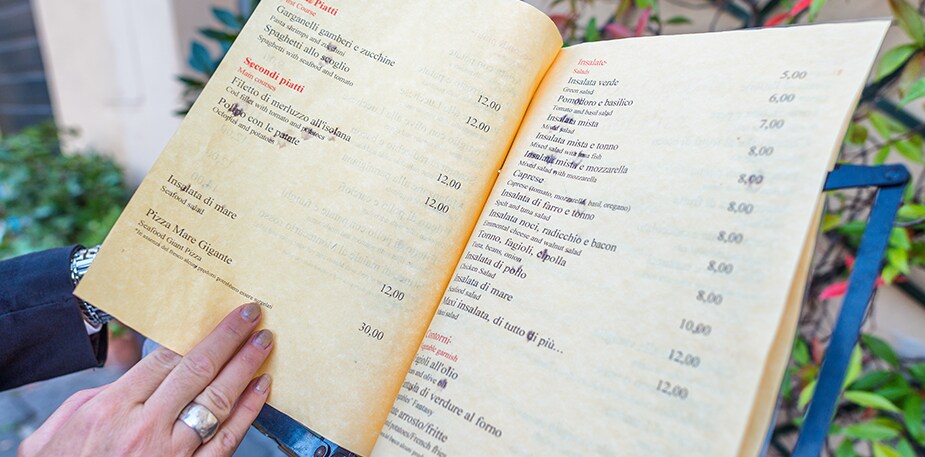 Piatti
Course
Garganelli gamberi e zucchine
Pasta shrimps and zucchini
Spaghetti allo scoglio
Spaghetti with seafood and tomato
12,00
12,00
Secondi piatti
Main courses
Filetto di merluzzo all'isolana
Cod fillet with tomato and potatoes
Polipo con le patate
Octopus and potatoes
12,00
12,00
Insalata di mare
Seafood salad
12,00
Pizza Mare Gigante
Seafood Giant Pizza
30,00
Insalate
Salads
Insalata verde
Green salad
5,00
Pomodoro e basilico
Tomato and basil salad
6,00
Insalata mista
Mixed salad
7,00
Insalata mista e tonno
Mixed salad with tuna fish
8,00
Insalata mista e mozzarella
Mixed salad with mozzarella
8,00
Caprese
Caprese (tomato, mozzarella, basil, oregano)
8,00
Insalata di farro e tonno
Spelt and tuna salad
8,00
Insalata noci, radicchio e bacon
Emmental cheese and walnut salad
8,00
Tonno, fagioli, cipolla
Tuna, beans, onion
8,00
Insalata di pollo
Chicken Salad
10,00
Insalata di mare
Seafood salad
12,00
Maxi insalata, di tutto di più...
salad
12,00
Contorni
garnish
all'olio
and olive
di verdure al forno
Fantasy
arrosto/fritte
potatoes/French fries